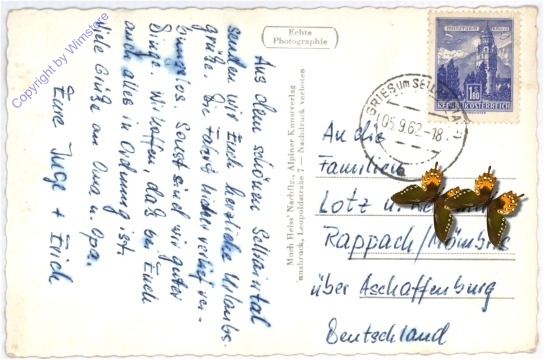 Echte
Photographie
Aus dem schönen Sellraintal
senden wir Euch herzliche Urlaubs-
grüße. Die Fahrt verlief rei-
bungslos. Sonst sind wir guter
Dinge. Wir hoffen, daß bei Euch
auch alles in Ordnung ist.
Viele Grüße an Oma u. Opa.
Eure Inge + Erich
Much Heiss' Nachflg., Alpiner Kunstverlag
Innsbruck, Leopoldstraße 7 — Nachdruck verboten
1.80
REPUBLIK ÖSTERREICH
GRIES um SELLRAINTAL
05.9.62-18
An die
Familien
Lotz u.
Rappach/Mömbris
über Aschaffenburg
Deutschland
Copyright by Wimstore